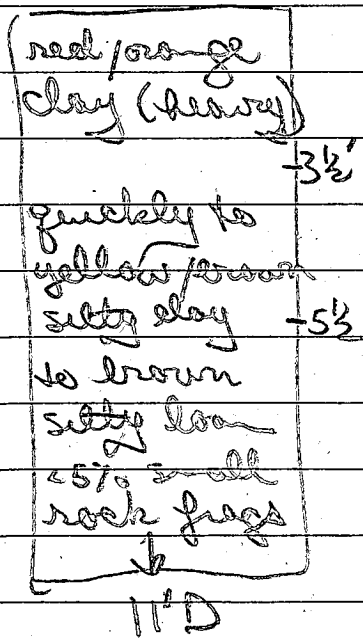 red/orange
clay (heavy)
-3½'
quickly to
yellow/brown
silty clay
-5½
to brown
silty loam
<5% small
rock frags
11'D